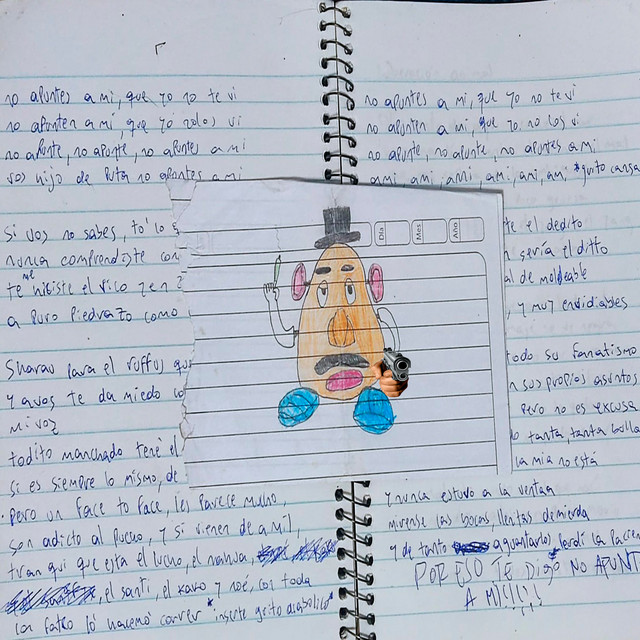 no apuntes a mi, que yo no te vi
no apunten a mi, que yo no los vi
no apunte, no apunte, no apuntes a mi
vos hijo de puta no apuntes a mi
Si vos no sabes, to' lo
nunca comprendiste
te me hiciste el rico
a puro piedrazo como
Sharau para el ruffus
y a vos te da miedo
mi voz
todito manchado tene el
si es siempre lo mismo, de
pero un face to face, les parece mucho,
son adicto al pucho, y si vienen de a mil
tran qui que esta el lucho, el nahua,
, el santi, el kavo y noé, con toda
la fafeo lo hacemo correr *inserte grito diabolico*
Día
Mes
Año
no apuntes a mi, que yo no te vi
no apunten a mi, que yo no los vi
no apunte, no apunte, no apuntes a mi
a mi, a mi, a mi, a mi, a mi, a mi *grito
te el dedito
sería el ditto
al de moldeable
, y muy envidiables
todo su fanatismo
n sus propios asuntos
pero no es excusa
tanta, tanta bulla
la mia no está
y nunca estuvo a la venta
mirense las bocas, llenitas de mierda
y de tanto aguantarlos perdí la pacien
POR ESO TE DIGO NO APUNT
A MI!¡!¡!¡